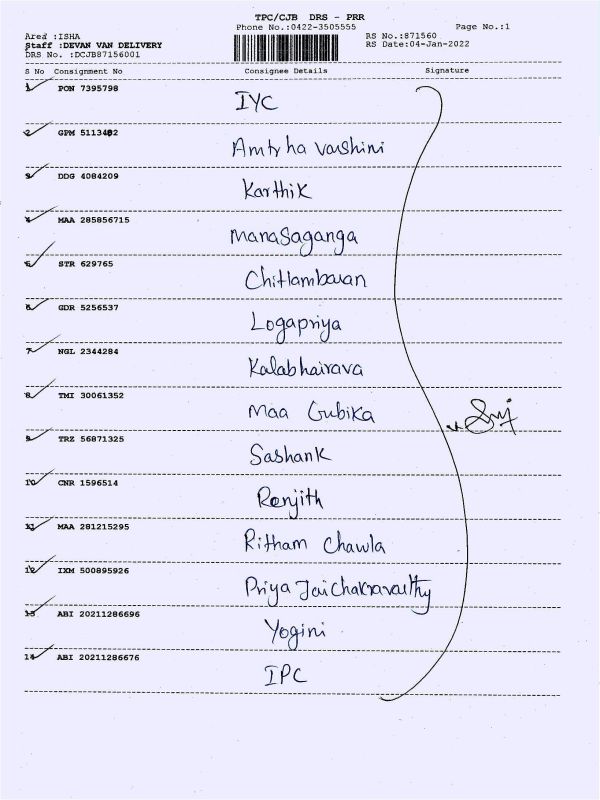 TPC/CJB DRS - PRR
Phone No.:0422-3505555 Page No.:1
Area :ISHA RS No.:871560
Staff :DEVAN VAN DELIVERY RS Date:04-Jan-2022
DRS No. :DCJB87156001
S No Consignment No Consignee Details Signature
1 PON 7395798 IYC
2 GPM 5113402 Amtyha varshini
3 DDG 4084209 Karthik
4 MAA 285856715 Manasaganga
5 STR 629765 Chitlambaran
6 GDR 5256537 Logapriya
7 NGL 2344284 Kalabhairava
8 TMI 30061352 Maa Gubika
9 TRZ 56871325 Sashank
10 CNR 1596514 Renjith
11 MAA 281215295 Ritham Chawla
12 IXM 500895926 Priya Jaichakravarthy
13 ABI 20211286696 Yogini
14 ABI 20211286676 IPC